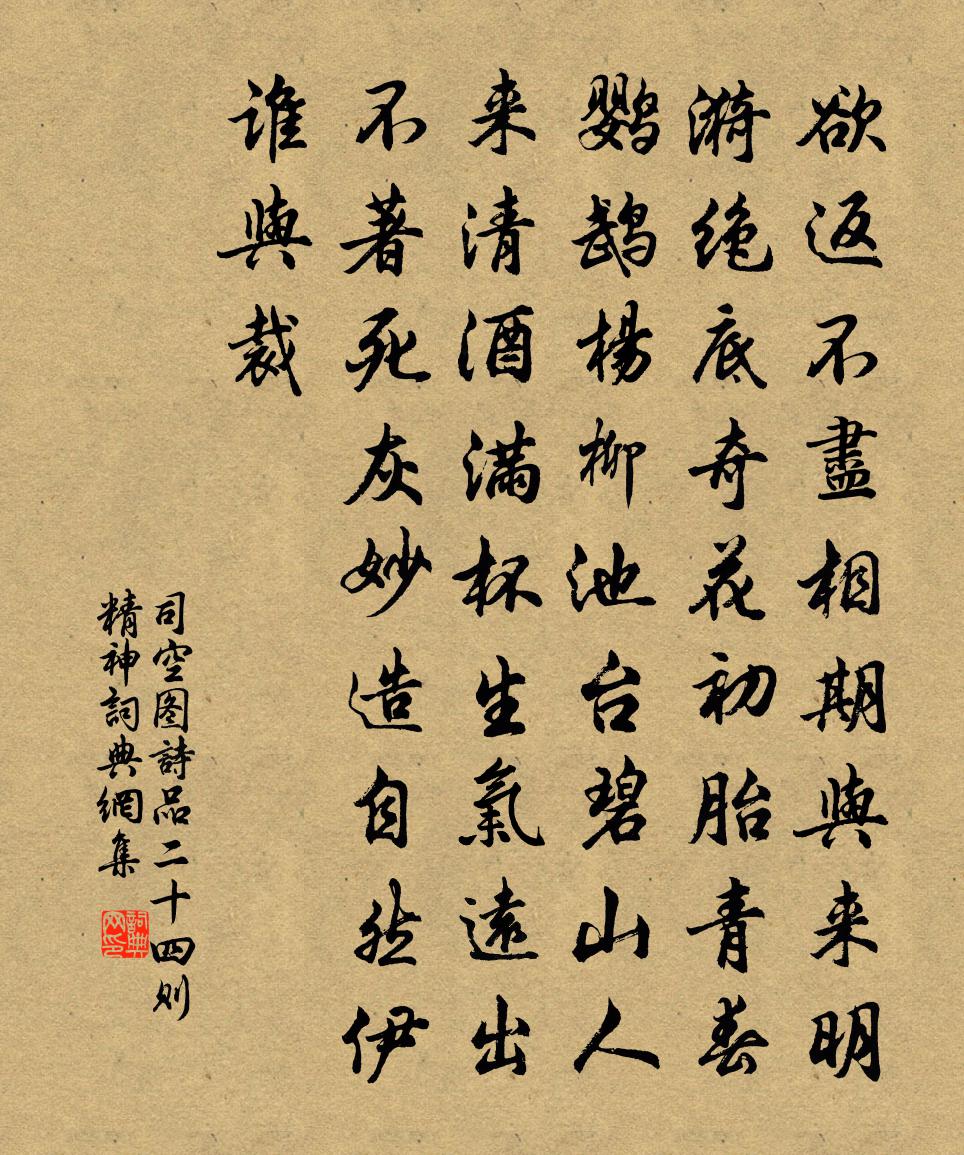 欲返不盡相期與来明
漪绝底奇花初胎青春
鹦鹉楊柳池台碧山人
来清酒滿杯生氣遠出
不著死灰妙造自然伊
谁與裁
司空图詩品二十四则
精神詞典網集
詞典网印